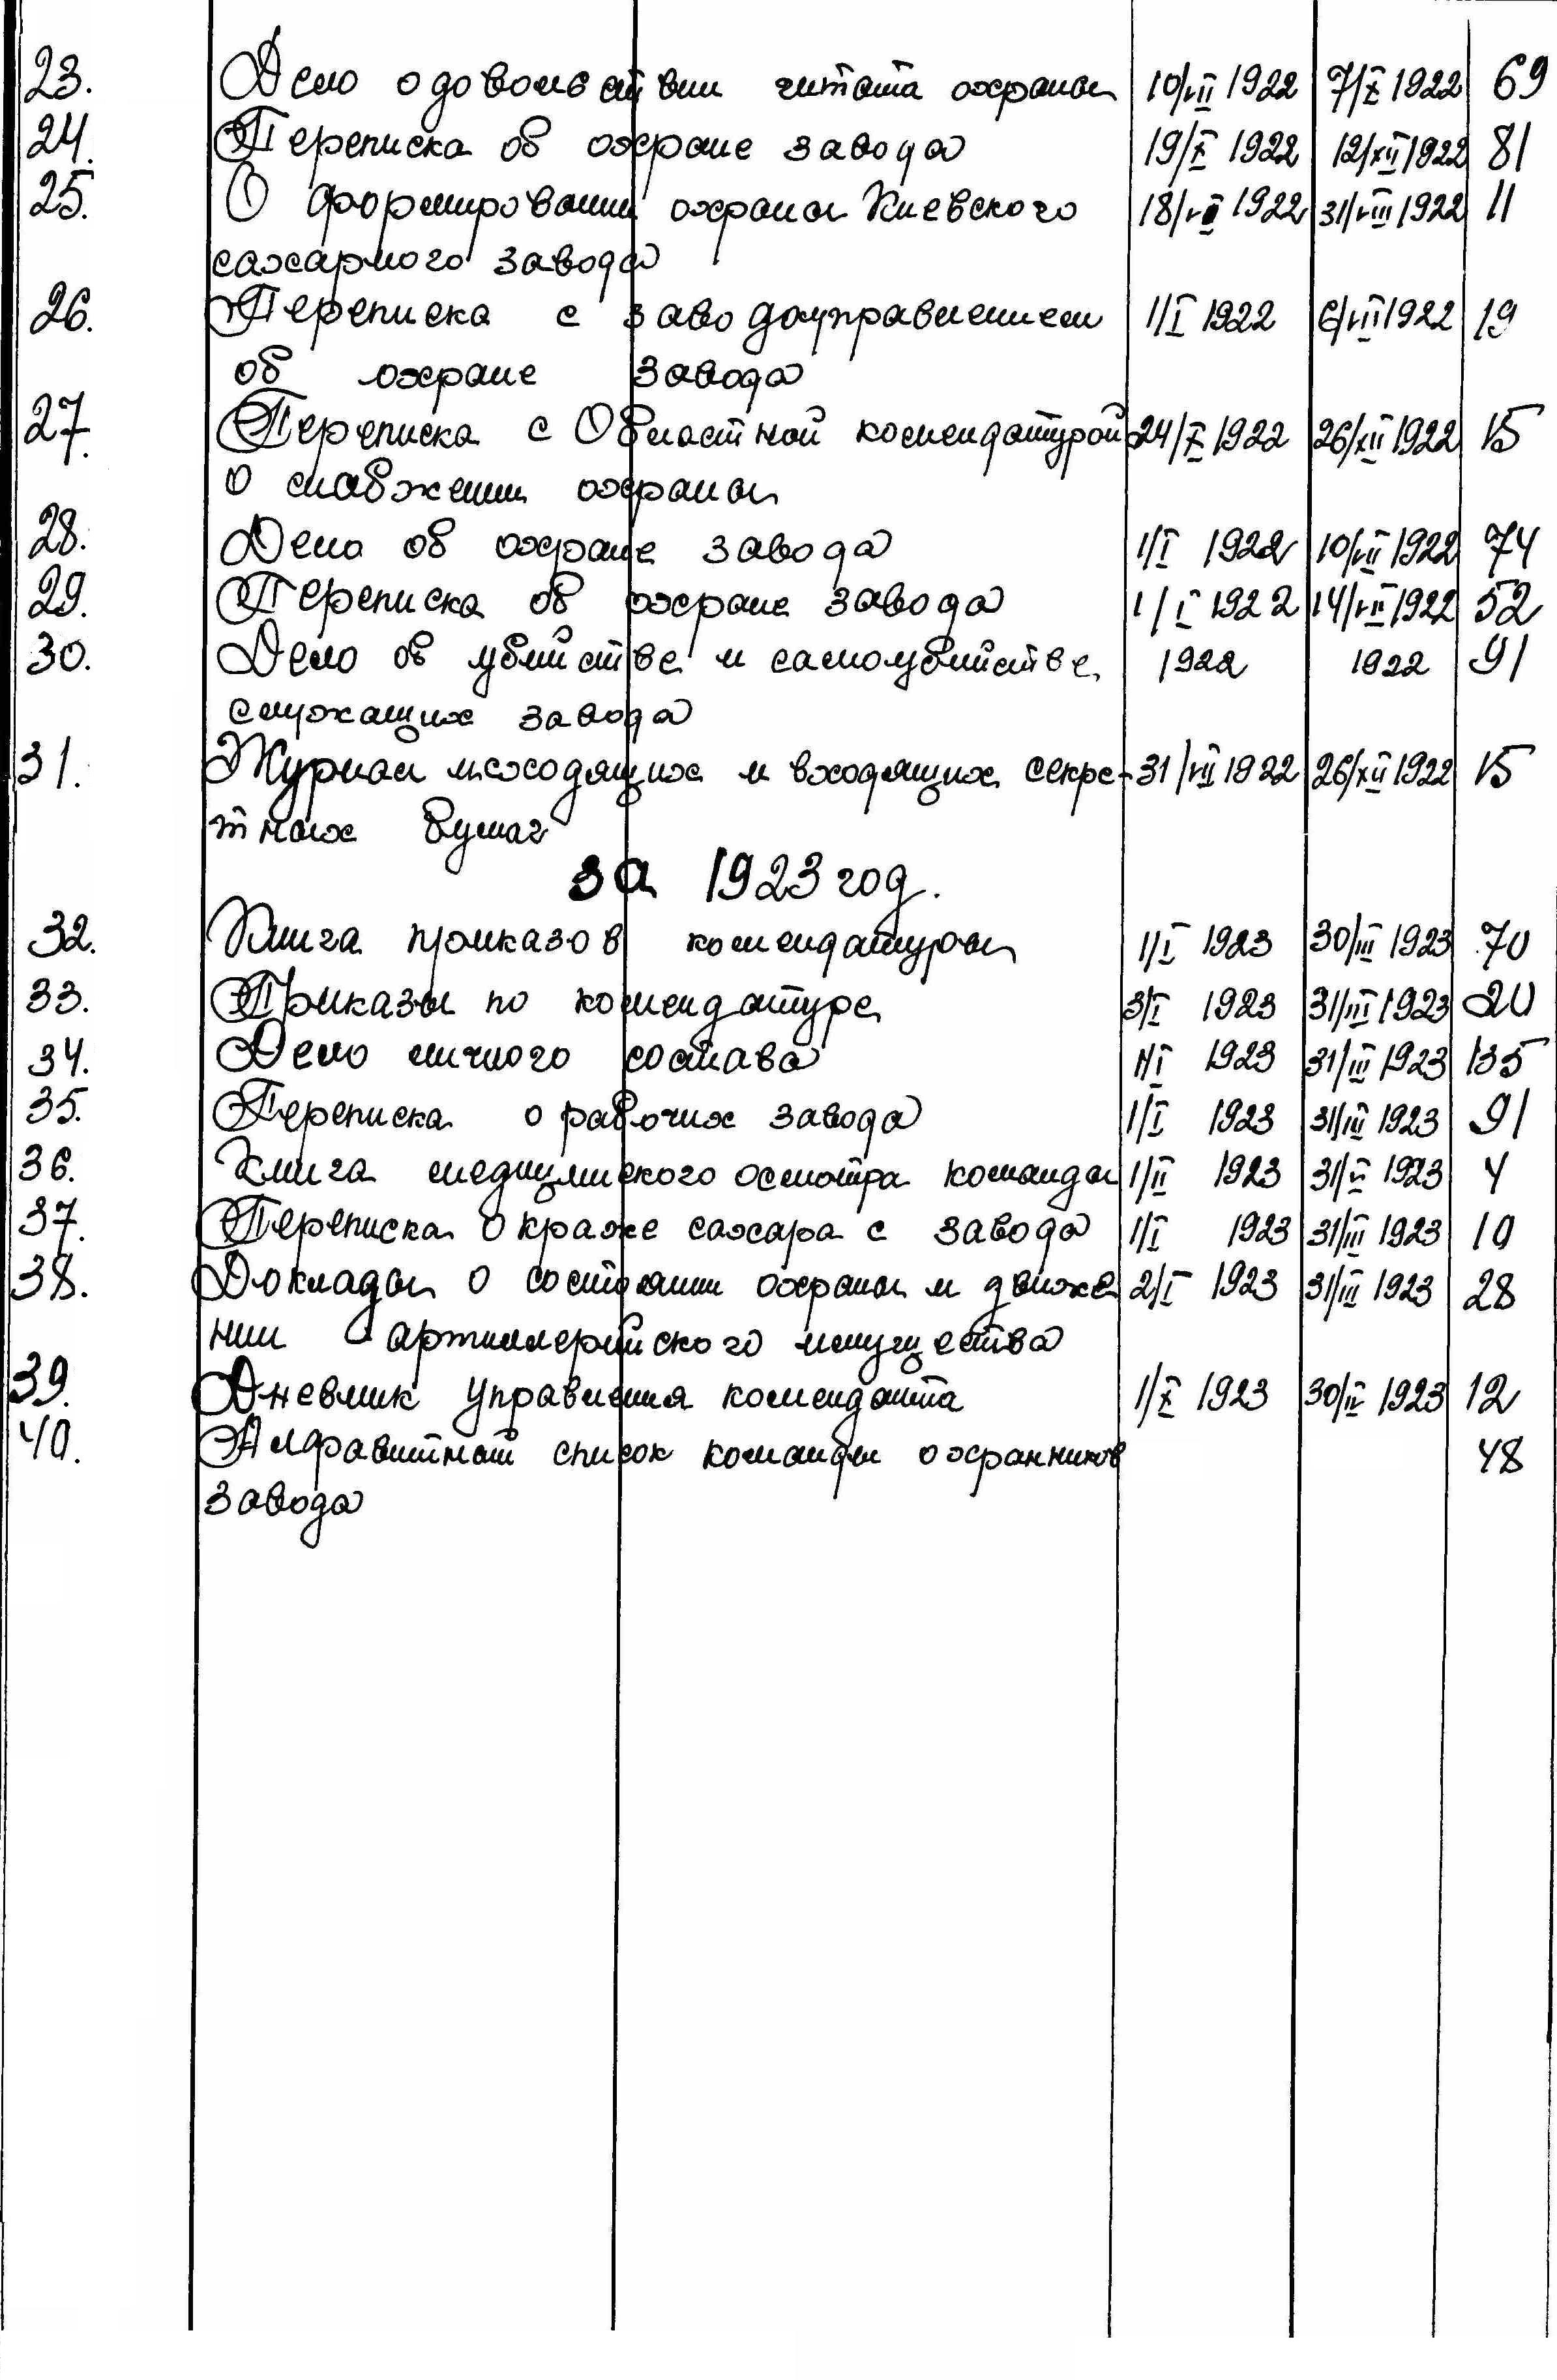 23. Дело о довольствии штата охраны 10/VII 1922 7/X 1922 69
24. Переписка об охране завода 19/X 1922 12/XII 1922 81
25. О формировании охраны Киевского 18/VII 1922 31/VIII 1922 11
сахарного завода
26. Переписка с заводоуправлением 1/I 1922 6/VIII 1922 19
об охране завода
27. Переписка с Областной комендатурой 24/X 1922 26/XII 1922 15
о снабжении охраны
28. Дело об охране завода 1/I 1922 10/VII 1922 74
29. Переписка об охране завода 1/I 1922 14/VII 1922 52
30. Дело об убийстве и самоубийстве 1922 1922 91
служащих завода
31. Журнал исходящих и входящих секре- 31/VII 1922 26/XII 1922 15
тных бумаг
за 1923 год.
32. Книга приказов комендатуры 1/I 1923 30/III 1923 70
33. Приказы по комендатуре 3/I 1923 31/III 1923 20
34. Дело личного состава 1/I 1923 31/III 1923 135
35. Переписка о рабочих завода 1/I 1923 31/III 1923 91
36. Книга медицинского осмотра команды 1/II 1923 31/V 1923 4
37. Переписка о краже сахара с завода 1/I 1923 31/III 1923 10
38. Доклады о состоянии охраны и движе 2/I 1923 31/III 1923 28
нии артиллерийского имущества
39. Дневник Управления коменданта 1/X 1923 30/IV 1923 12
40. Алфавитный список команды охранников 48
завода